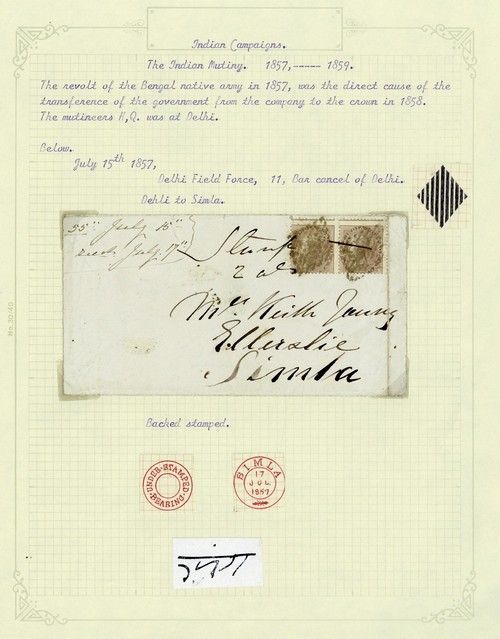 Indian Campaigns.
The Indian Mutiny. 1857,----- 1859.
The revolt of the Bengal native army in 1857, was the direct cause of the
transference of the government from the company to the crown in 1858.
The mutineers H,Q. was at Delhi.
Below.
July 15th 1857,
Delhi Field Force, 11, Bar cancel of Delhi.
Dehli to Simla.
35 July 15"
July 17"
Stamp
2 as
Mrs Keith Young
Ellerslie
Simla
Backed stamped.
UNDER-STAMPED-
BEARING-
SIMLA
17
JUL
1857
No 30/40